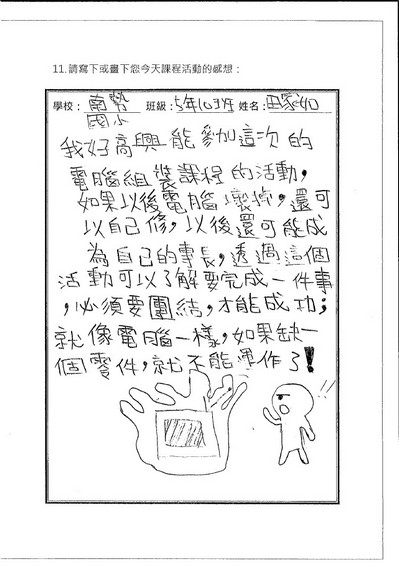 11.請寫下或畫下您今天課程活動的感想：
學校：南勢 班級：5年10班 姓名：田家如
國小
我好高興能參加這次的
電腦組裝課程的活動，
如果以後電腦壞掉，還可
以自己修，以後還可能成
為自己的專長，透過這個
活動可以了解要完成一件事
，必須要團結，才能成功；
就像電腦一樣，如果缺一
個零件，就不能運作了！